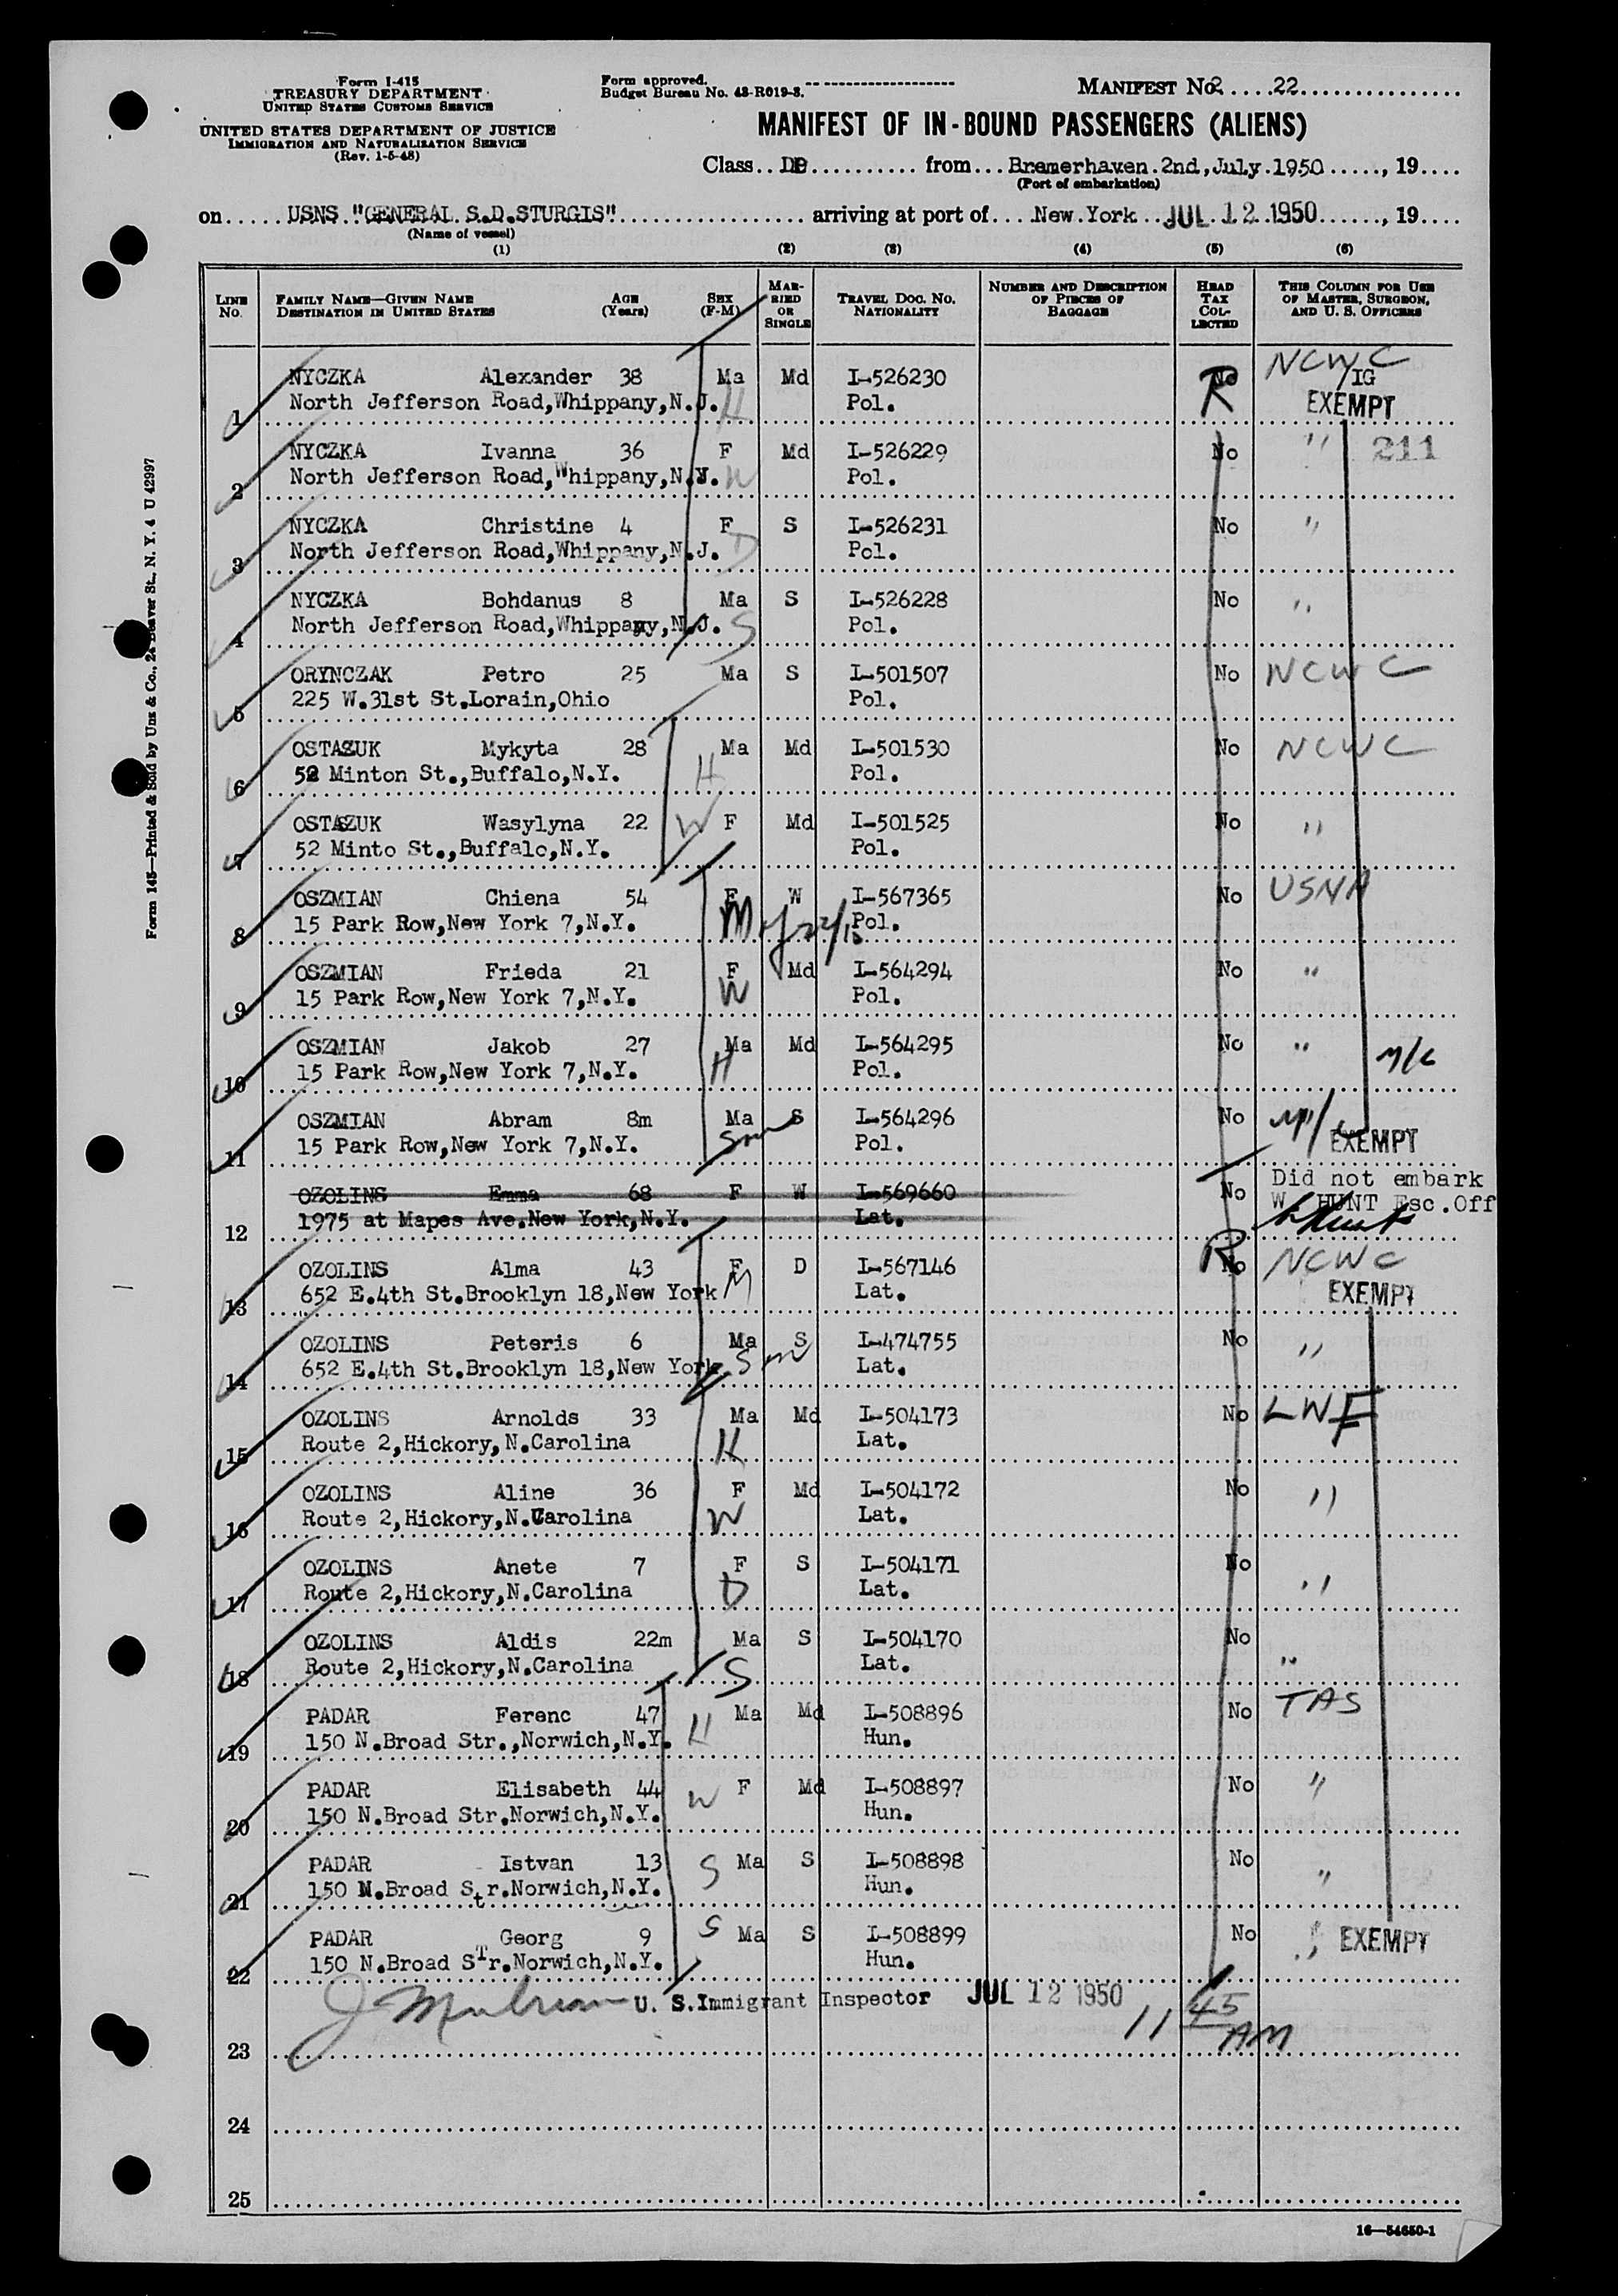 Form I-415
TREASURY DEPARTMENT
UNITED STATES CUSTOMS SERVICE
UNITED STATES DEPARTMENT OF JUSTICE
IMMIGRATION AND NATURALIZATION SERVICE
(Rev. 1-5-48)
Form approved.
Budget Bureau No. 43-R019-3.
MANIFEST No. 2 .... 22
MANIFEST OF IN-BOUND PASSENGERS (ALIENS)
Class DP from Bremerhaven 2nd, July 1950, 19
(Port of embarkation)
on USNS "GENERAL S.D.STURGIS" arriving at port of New York JUL 12 1950, 19
(Name of vessel)
(1) (2) (3) (4) (5) (6)
LINE No. FAMILY NAME—GIVEN NAME DESTINATION IN UNITED STATES AGE (Years) SEX (F-M) MARRIED OR SINGLE TRAVEL DOC. NO. NATIONALITY NUMBER AND DESCRIPTION OF PIECES OF BAGGAGE HEAD TAX COLLECTED THIS COLUMN FOR USE OF MASTER, SURGEON, AND U. S. OFFICERS
NYCZKA Alexander 38 Ma Md I-526230 No R NCWC IG
1 North Jefferson Road,Whippany,N.J. H Pol. EXEMPT
NYCZKA Ivanna 36 F Md I-526229 No " 211
2 North Jefferson Road,Whippany,N.J. W Pol.
NYCZKA Christine 4 F S I-526231 No "
3 North Jefferson Road,Whippany,N.J. D Pol.
NYCZKA Bohdanus 8 Ma S I-526228 No "
4 North Jefferson Road,Whippany,N.J. S Pol.
ORYNCZAK Petro 25 Ma S I-501507 No NCWC
5 225 W.31st St.Lorain,Ohio Pol.
OSTASUK Mykyta 28 Ma Md I-501530 No NCWC
6 52 Minton St.,Buffalo,N.Y. H Pol.
OSTASZUK Wasylyna 22 W F Md I-501525 No "
7 52 Minto St.,Buffalo,N.Y. Pol.
OSZMIAN Chiena 54 F W I-567365 No USNA
8 15 Park Row,New York 7,N.Y. M Pol.
OSZMIAN Frieda 21 F Md I-564294 No "
9 15 Park Row,New York 7,N.Y. W Pol.
OSZMIAN Jakob 27 Ma Md I-564295 No "
10 15 Park Row,New York 7,N.Y. H Pol.
OSZMIAN Abram 8m Ma S I-564296 No
11 15 Park Row,New York 7,N.Y. Son Pol. EXEMPT
OZOLINS Emma 68 F W I-569660 No Did not embark
12 1975 at Mapes Ave.New York,N.Y. Lat. W. HUNT Esc.Off
OZOLINS Alma 43 F D I-567146 R No NCWC
13 652 E.4th St.Brooklyn 18,New York M Lat. EXEMPT
OZOLINS Peteris 6 Ma S I-474755 No "
14 652 E.4th St.Brooklyn 18,New York Son Lat.
OZOLINS Arnolds 33 Ma Md I-504173 No LWF
15 Route 2,Hickory,N.Carolina H Lat.
OZOLINS Aline 36 F Md I-504172 No "
16 Route 2,Hickory,N.Carolina W Lat.
OZOLINS Anete 7 F S I-504171 No "
17 Route 2,Hickory,N.Carolina D Lat.
OZOLINS Aldis 22m Ma S I-504170 No "
18 Route 2,Hickory,N.Carolina S Lat.
PADAR Ferenc 47 Ma Md I-508896 No TAS
19 150 N.Broad Str.,Norwich,N.Y. H Hun.
PADAR Elisabeth 44 F Md I-508897 No "
20 150 N.Broad Str.Norwich,N.Y. W Hun.
PADAR Istvan 13 Ma S I-508898 No "
21 150 N.Broad Str.Norwich,N.Y. S Hun.
PADAR Georg 9 S Ma S I-508899 No " EXEMPT
22 150 N.Broad STr.Norwich,N.Y. Hun.
U. S.Immigrant Inspector JUL 12 1950 11 45 AM
23
24
25
16—54650-1
Form 145—Printed & Sold by Unz & Co., 24 Beaver St., N. Y. 4 U 42997